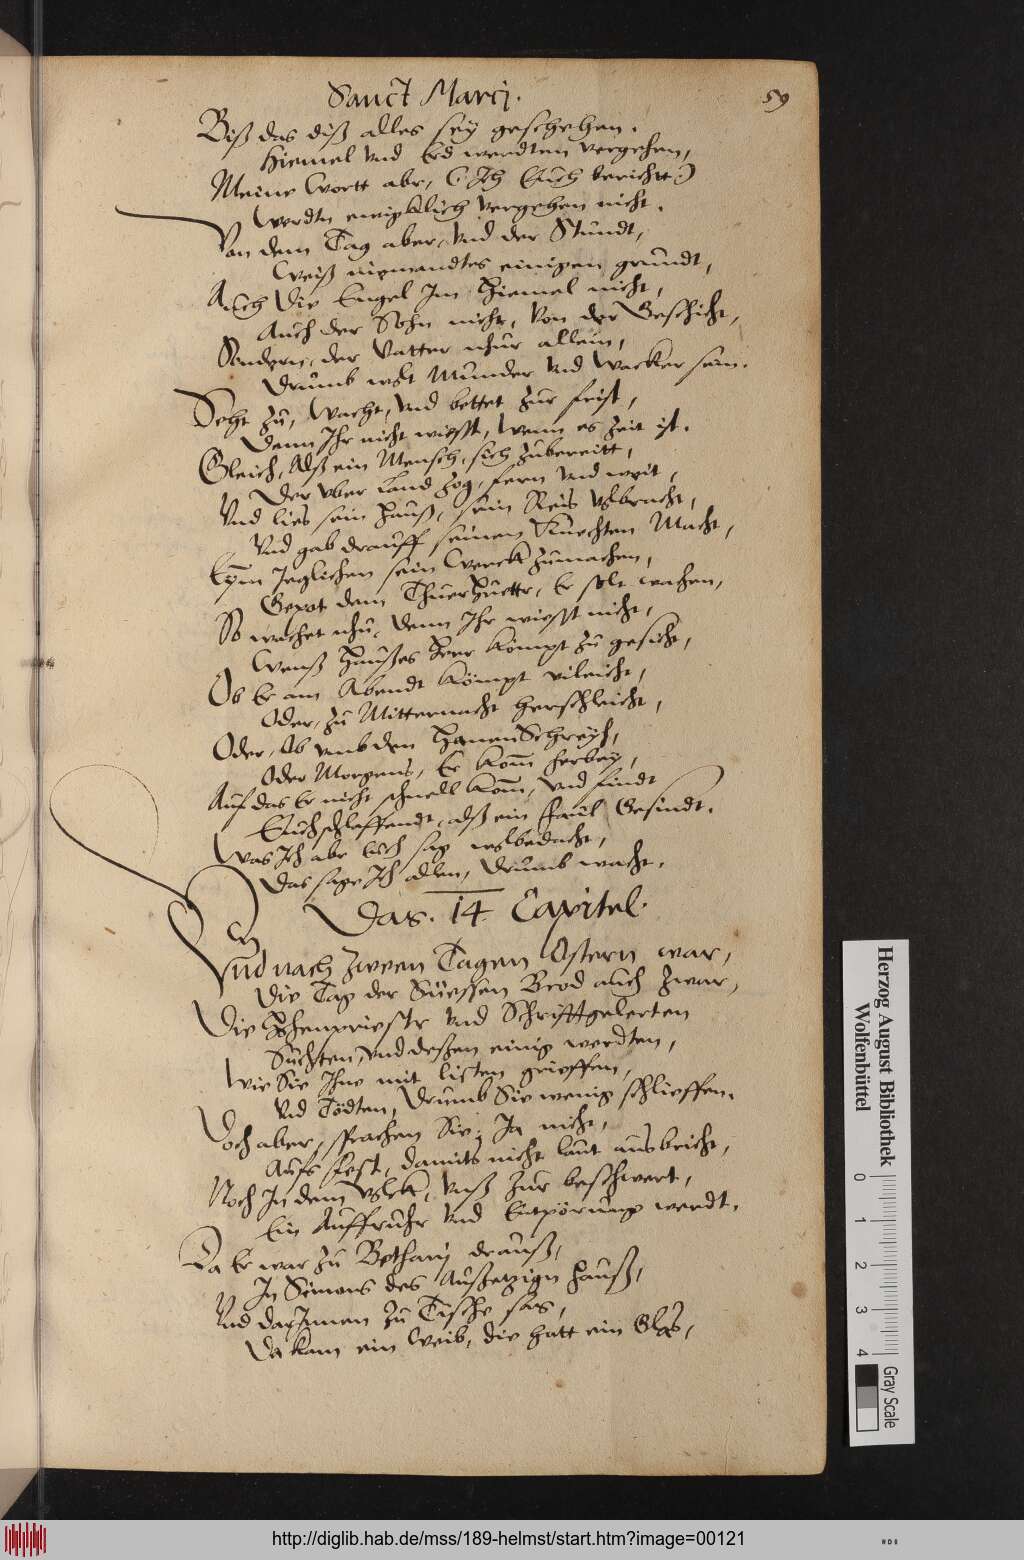 Sanct Marcj.
59
Biß das diß alles seÿ geschehen.
Hiemel vnd Erd werdten vergehen,
Meine Wortt abr, (: Ich Euch bericht :)
Werdtn ewigklich vergehen nicht.
Von dem Tag aber, vnd der Stundt,
Weiß niemandtes einigen grundt,
Auch die Engel Im Hiemel nicht,
Auch der Sohn nicht, von der Geschicht,
Sondern, der Vatter nhur allein,
Drumb wolt Munder vnd Wacker sein.
Seht zu, Wacht, vnd bettet zur frist,
Dann Ihr nicht wiesst, Wenn es Zeit ist.
Gleich, Alß ein Mensch, sich zubereitt,
Der vber Land zog, fern vnd weit,
Vnd lies sein Hauß, sein Reis volbracht,
Vnd gab drauff seinen Knechten Macht,
Eÿm Jeglichen sein Werck zumachen,
Gepot dem ThuerHuettr, Er solt wachen,
So wachet nhu, denn Ihr wiesst nicht,
Wenß Haußes Herr kömpt zu gesicht,
Ob Er am Abendt kömpt vileicht,
Oder, zu Mitternacht herschleicht,
Oder, Ob vmb den HanenSchreÿh,
Oder Morgens, Er kom̄ herbeÿ,
Auf das Er nicht schnell kom̄, vnd findt
Euch schlaffendt, alß ein faul Gesindt.
Was Ich abr Euch sag wolbedacht,
Das sage Ich allen, Drumb wacht.
Das. 14. Capitel.
Vnd nach zween Tagen Ostern war,
Die Tag der Süessen Brod auch zwar,
Die Hohenpriestr vnd Schrifftgelerten
Suchten, vnd deßen einig werdten,
Wie Sie Ihne mit listen grieffen,
Vnd Tödten, Drumb Sie wenig schlieffen.
Doch aber, sprachen Sie, Ja nicht,
Aufs fest, damits nicht laut ausbricht,
Noch In dem Volck, vnß zur beschwert,
Ein Auffruhr vnd Entpörung werdt.
Da Er war zu Bethanj drauß,
In Simons des Außetzign Hauß,
Vnd darJnnen zu Tische sas,
Da kam ein Weib, die hatt ein Glas,
Herzog August Bibliothek
Wolfenbüttel
0 1 2 3 4
Gray Scale
http://diglib.hab.de/mss/189-helmst/start.htm?image=00121